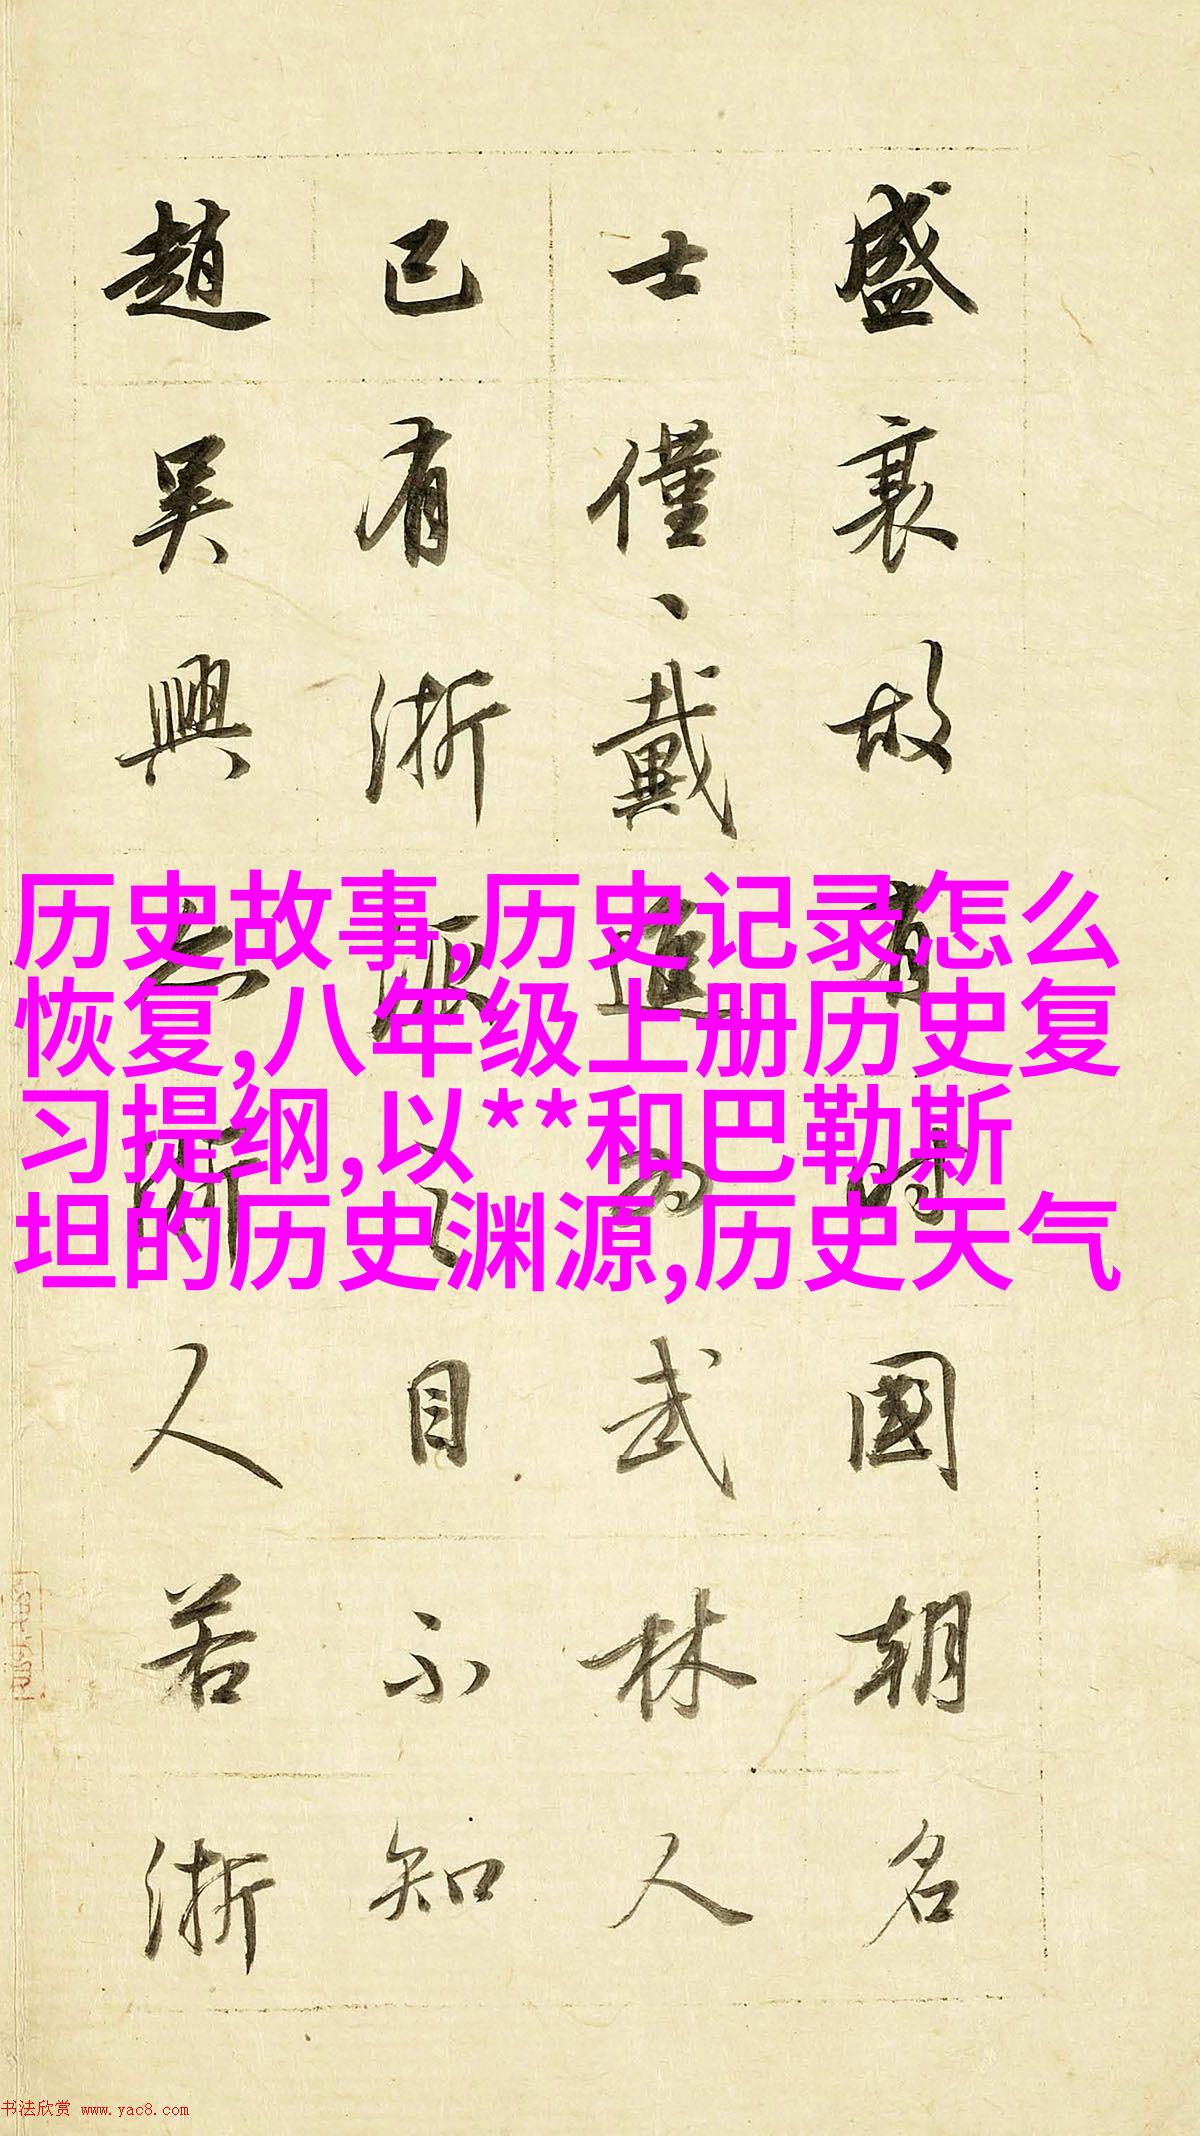 盛衰故有時國朝名
士僅、戴進為武林人
已有浙派之目不知
趙吳興亦浙人若浙
历史故事,历史记录怎么
恢复,八年级上册历史复
习提纲,以**和巴勒斯
坦的历史渊源,历史天气
书法欣赏 www.yac8.com